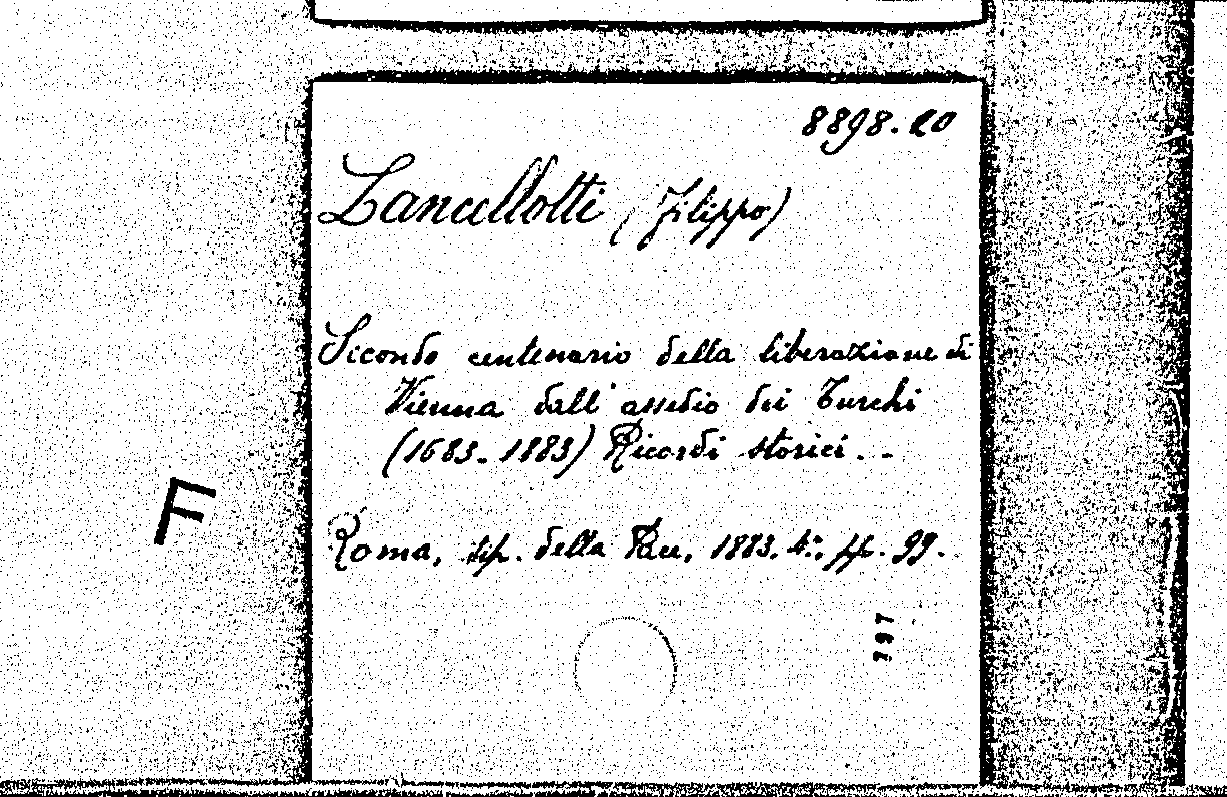 8898.20
Lancellotti (Filippo)
Secondo centenario della liberazione di
Vienna dall'assedio dei Turchi
(1683-1883) Ricordi storici..
F
Roma, tip. della Pace, 1883. 4°. pp. 99.
797